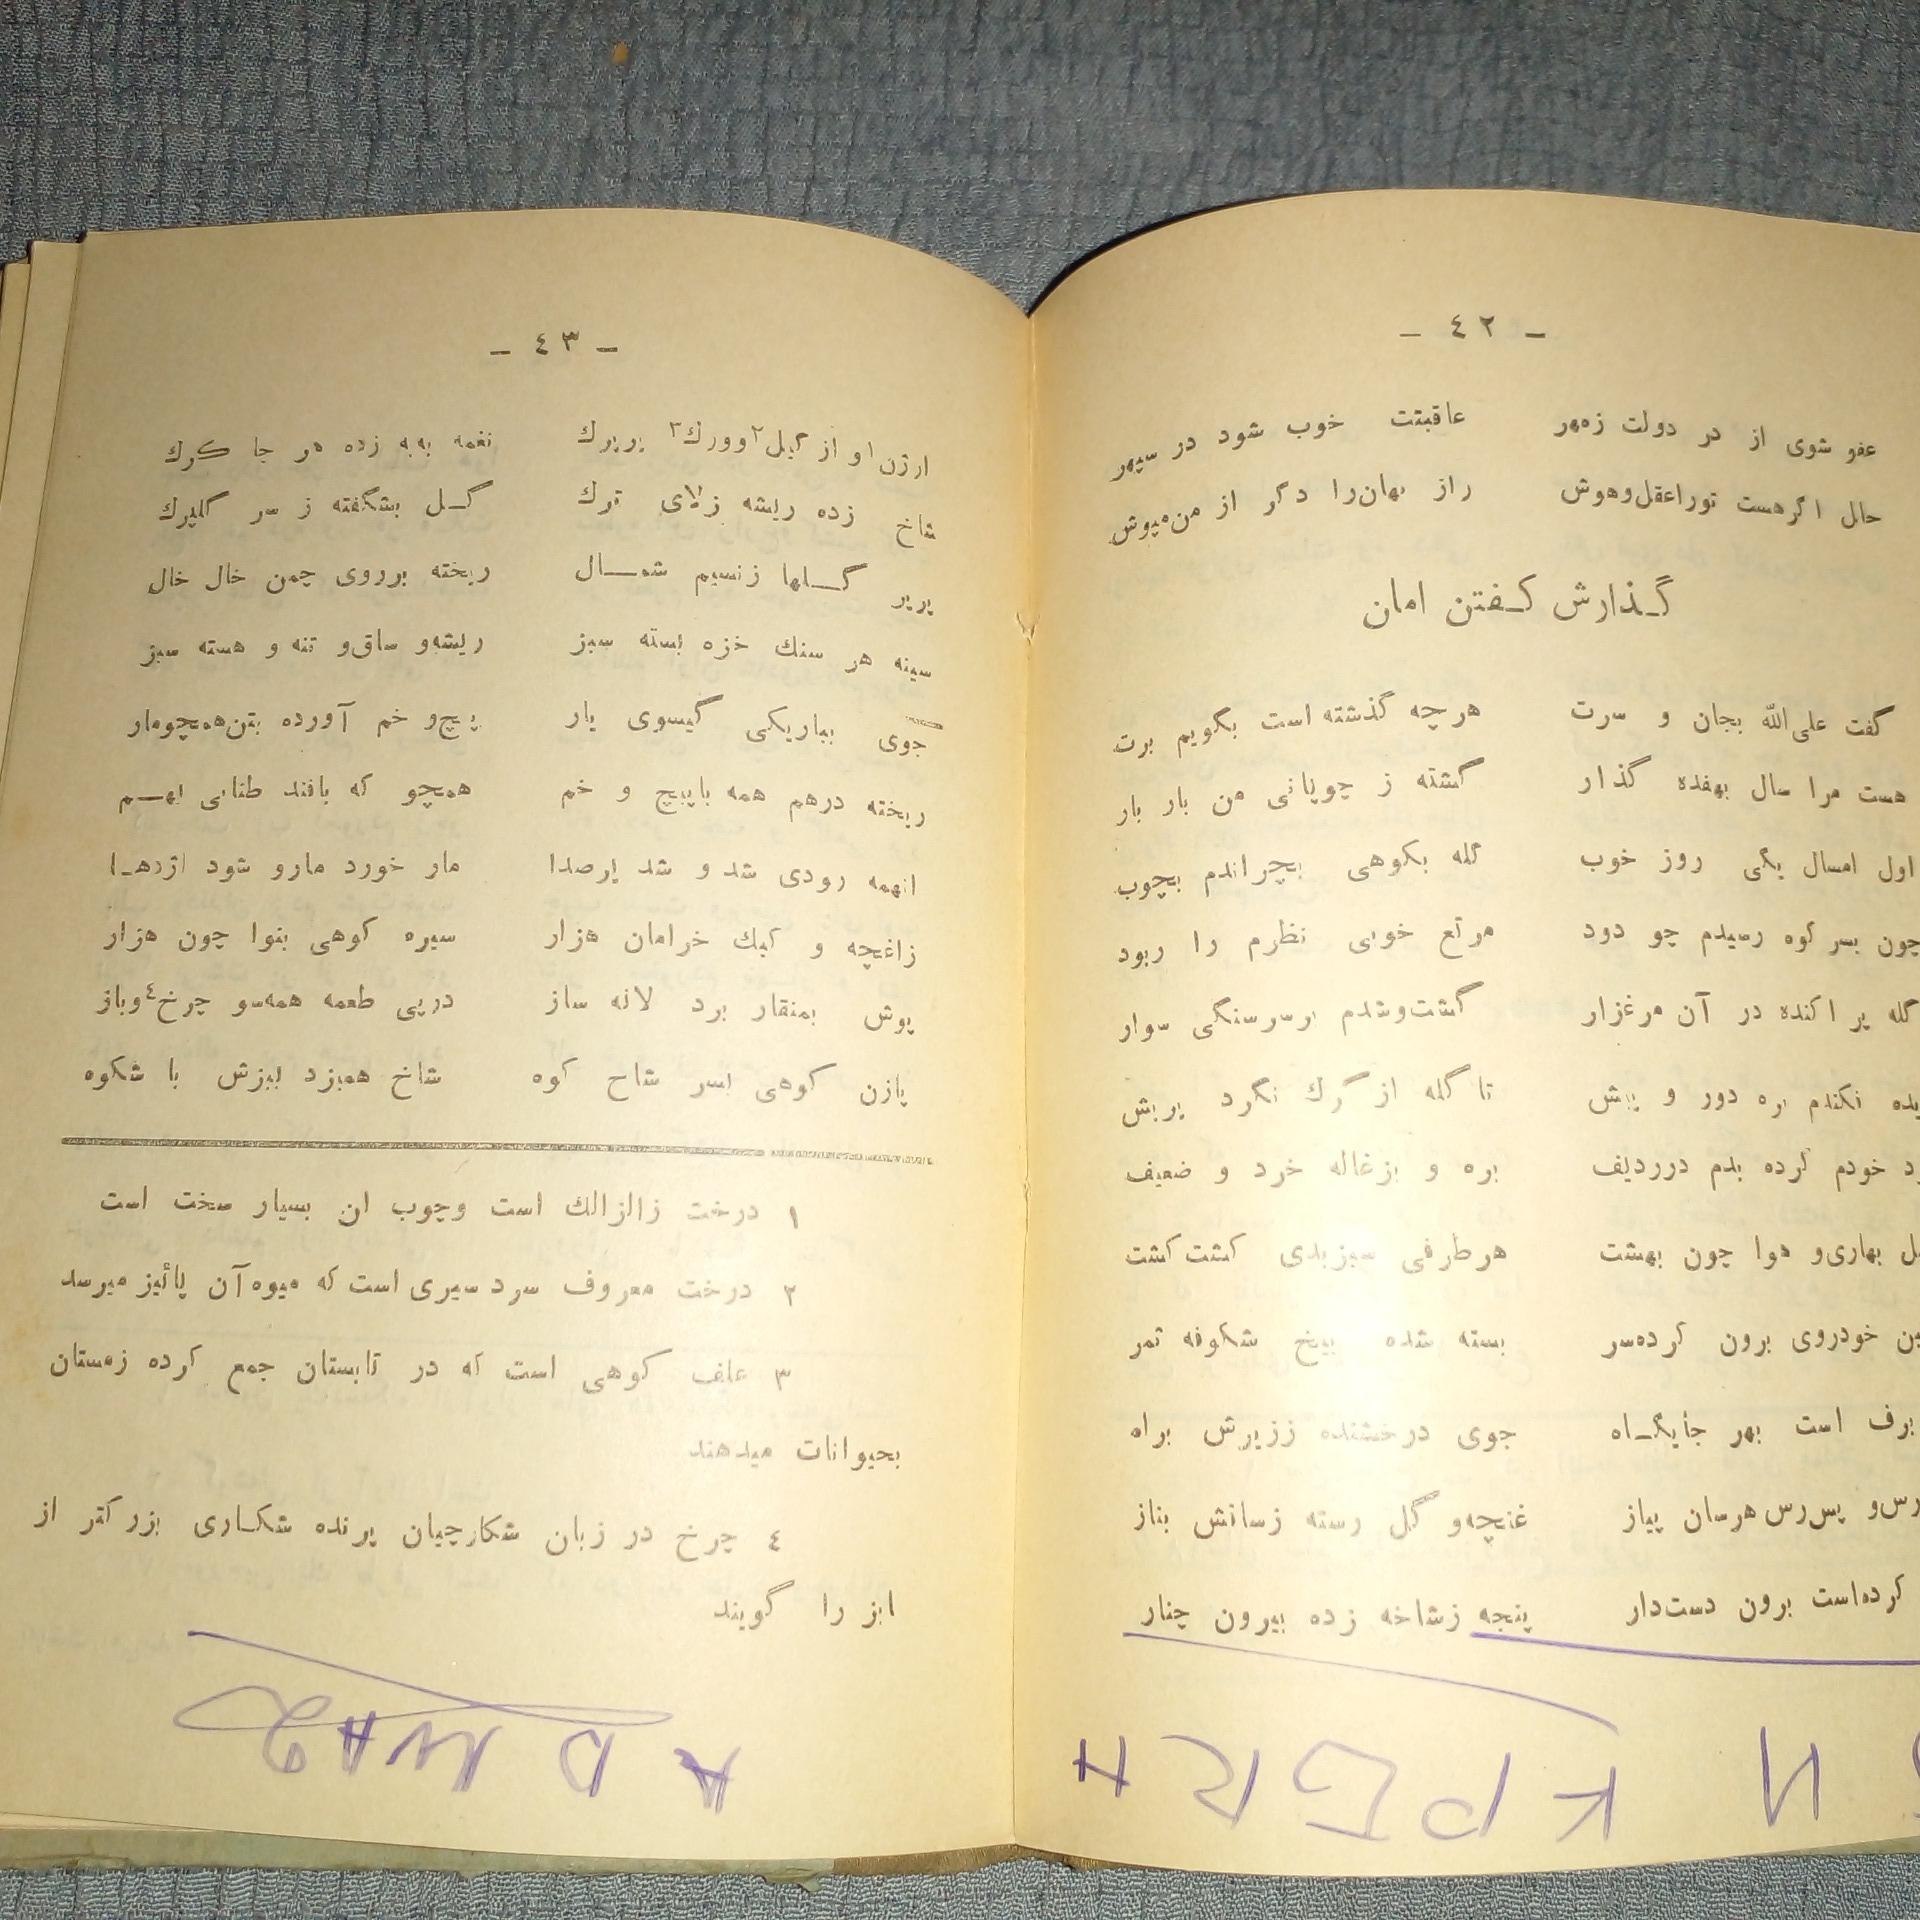 - ٤٢ -
عفو شوی از در دولت زمهر عاقبتت خوب شود در سپهر
حال اگرهست توراعقل‌وهوش راز نهان‌را دگر از من‌مپوش
گـذارش کـفتن امان
گفت علی‌الله بجان و سرت هرچه گذشته است بگویم برت
هست مرا سال بهفده گذار گشته ز چوپانی من بار بار
اول امسال یکی روز خوب گله بکوهی بچراندم بچوب
چون بسر کوه رسیدم چو دود مرتع خوبی نظرم را ربود
گله پراکنده در آن مرغزار گشت‌وشدم برسرسنگی سوار
نکندم بره دور و پیش تا گله از گرگ نگردد پریش
خودم کرده بدم درردیف بره و بزغاله خرد و ضعیف
بهاری‌و هوا چون بهشت هرطرفی سبزبدی کشت کشت
خودروی برون کرده‌سر بسته شده بیخ شکوفه ثمر
برف است بهر جایگـاه جوی درخشنده ززیرش براه
پس‌رس هرسان پیاز غنچه‌و گل رسته زسانش بناز
کرده‌است برون دست‌دار پنجه زشاخه زده بیرون چنار
И КРЕБRA
- ٤٣ -
ارژن۱و از گبل۲وورك۳ بربرك نغمه به‌به زده هر جا کرك
شاخ زده ریشه زلای ترك گـل بشگفته ز سر گلپرك
پرپر گـلها زنسیم شمـال ریخته برروی چمن خال خال
سینه هر سنك خزه بسته سبز ریشه‌و ساق‌و تنه و هسته سبز
جوی بباریکی گیسوی یار پیچ‌و خم آورده بتن‌همچومار
ریخته درهم همه باپیچ و خم همچو که بافند طنابی بهـم
اینهمه رودی شد و شد پرصدا مار خورد مارو شود اژدهـا
زاغچه و کبك خرامان هزار سیره کوهی بنوا چون هزار
پوش بمنقار برد لانه ساز درپی طعمه همه‌سو چرخ٤وباز
پازن کوهی بسر شاخ کوه شاخ همیزد ببزش با شکوه
۱ درخت زالزالك است وچوب ان بسیار سخت است
۲ درخت معروف سرد سیری است که میوه آن پائیز میرسد
۳ علف کوهی است که در تابستان جمع کرده زمستان
بحیوانات میدهند
٤ چرخ در زبان شکارچیان پرنده شکـاری بزرگتر از
ابز را گویند